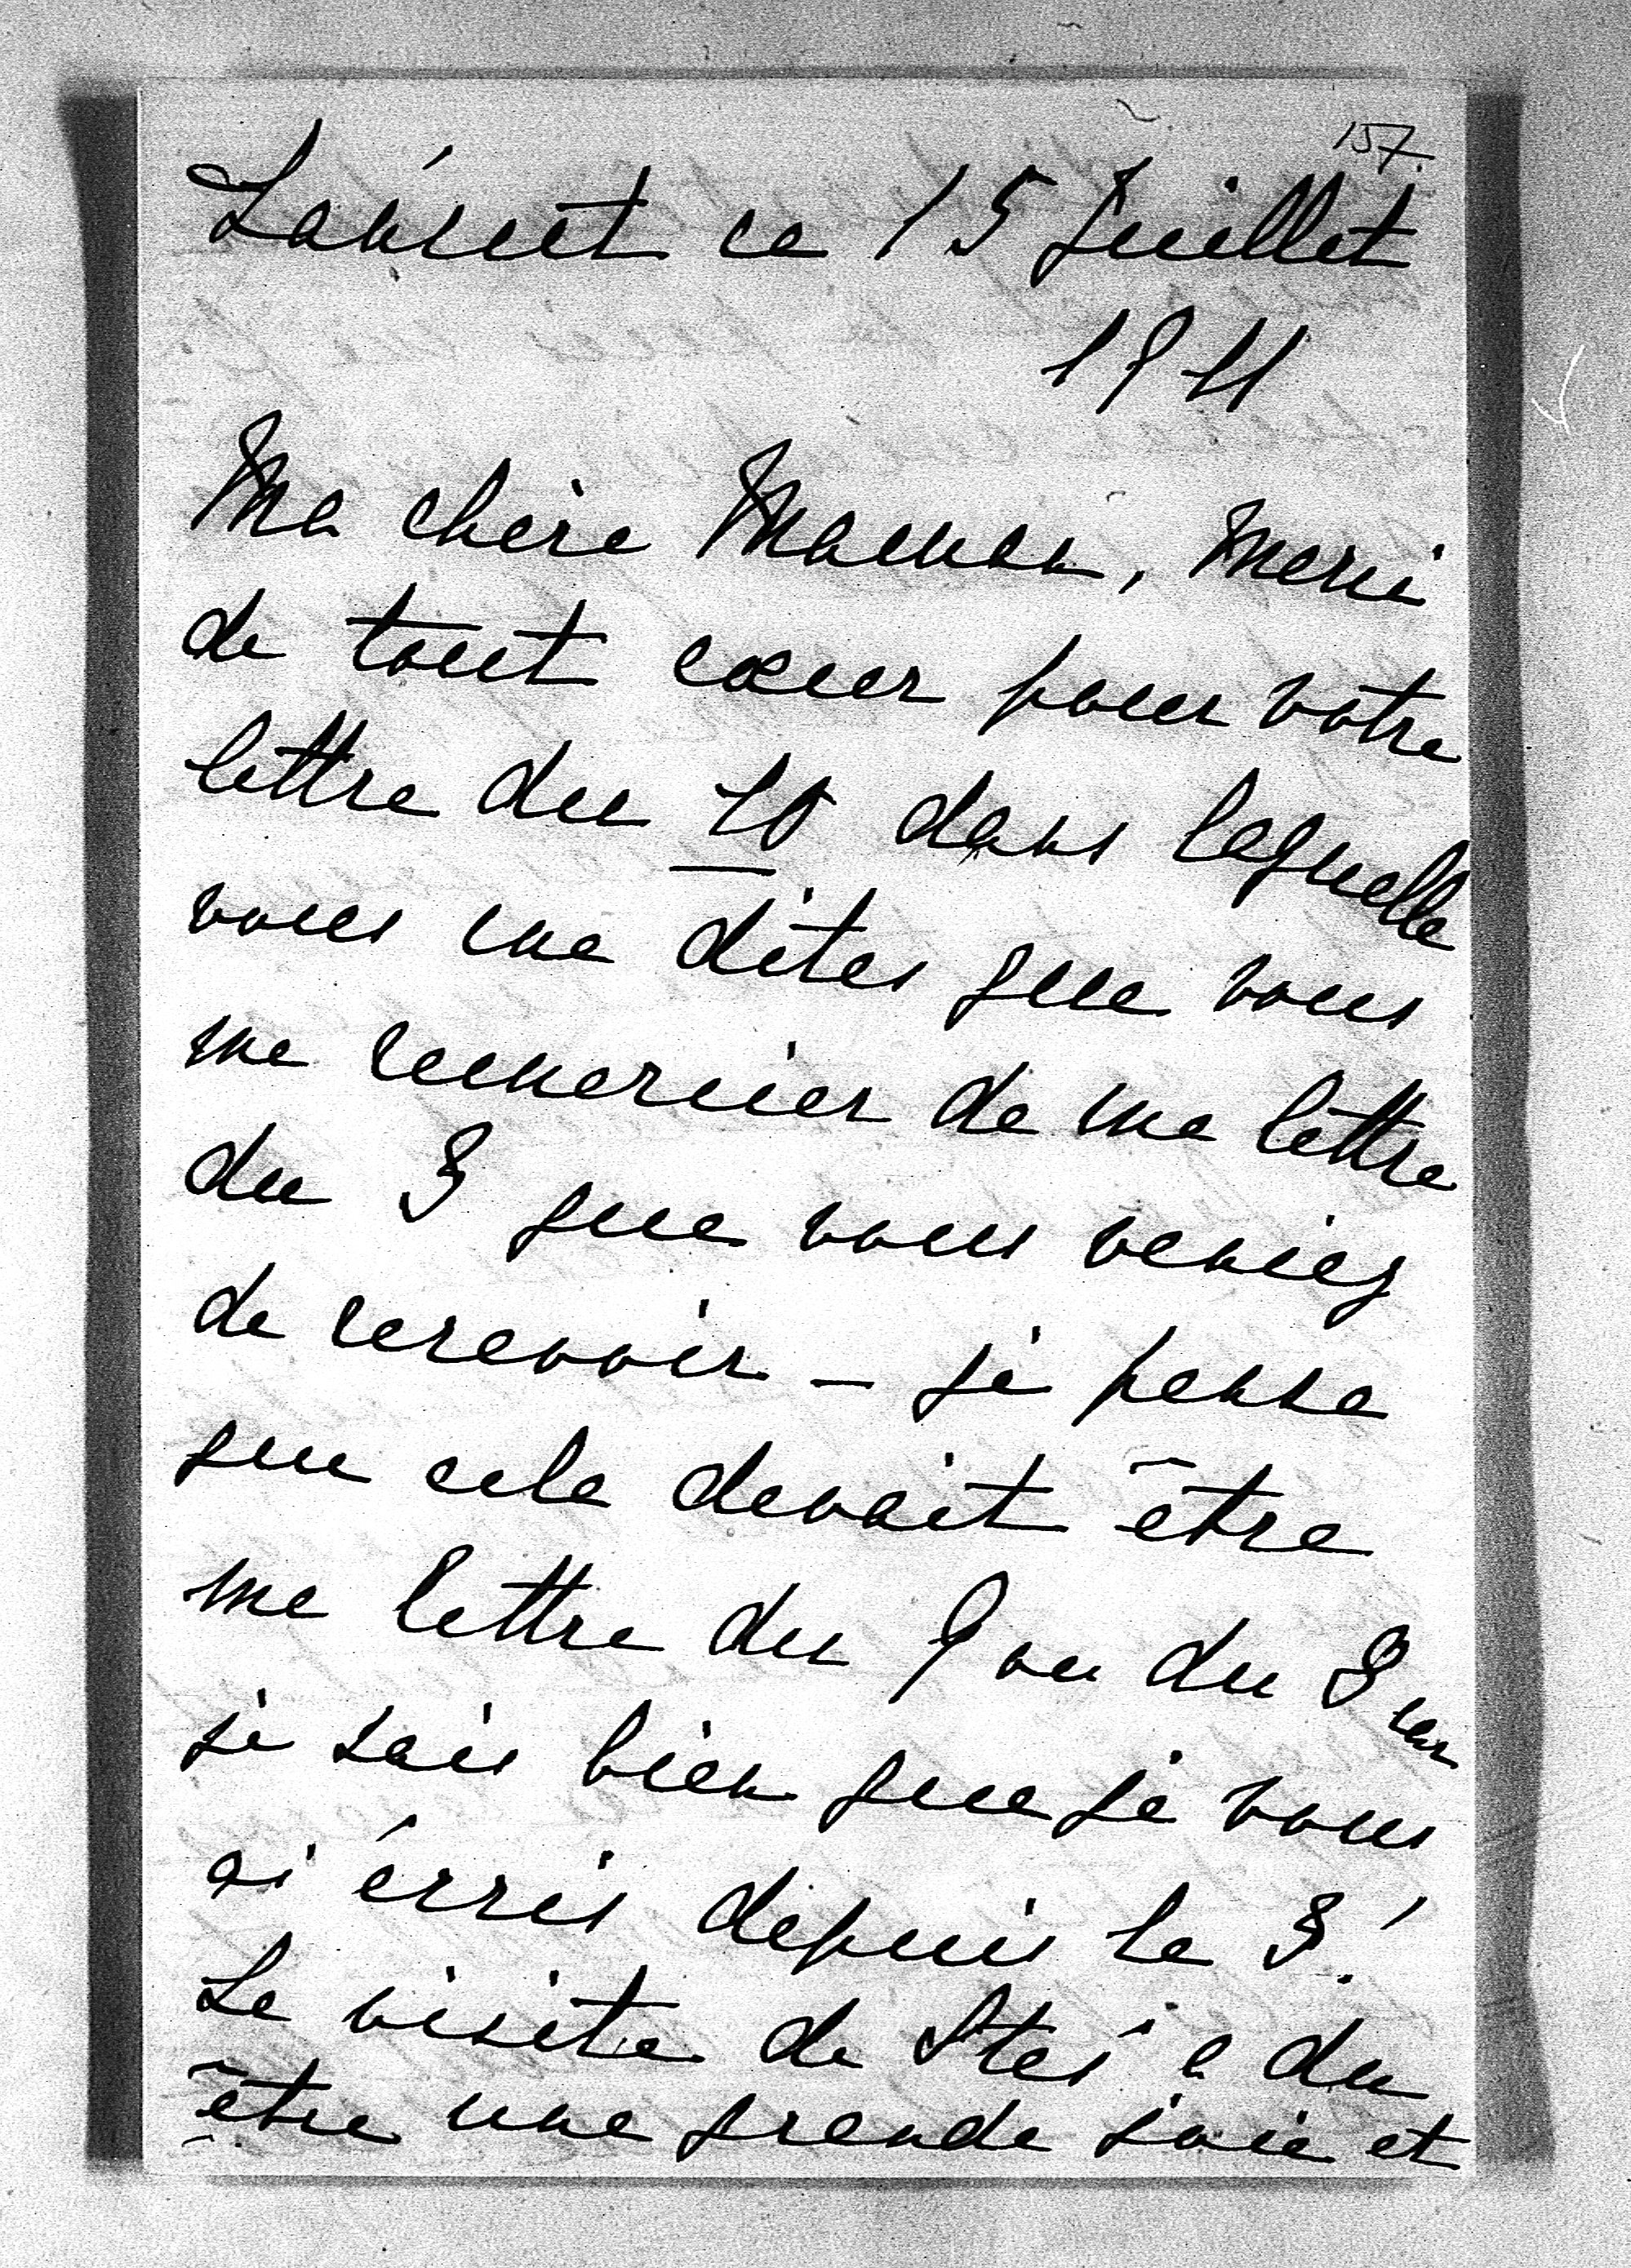 157.
Laünet ce 15 Juillet
1911
Ma chère Maman, merci
de tout cœur pour votre
lettre du 10 dans laquelle
vous me dites que vous
me remercier de ma lettre
du 3 que vous veniez
de recevoir – je pense
que cela devait être
ma lettre du 9 ou du 8 car
je sais bien que je vous
ai écris depuis le 3!
La visite de Steï a du
être une grande joie et